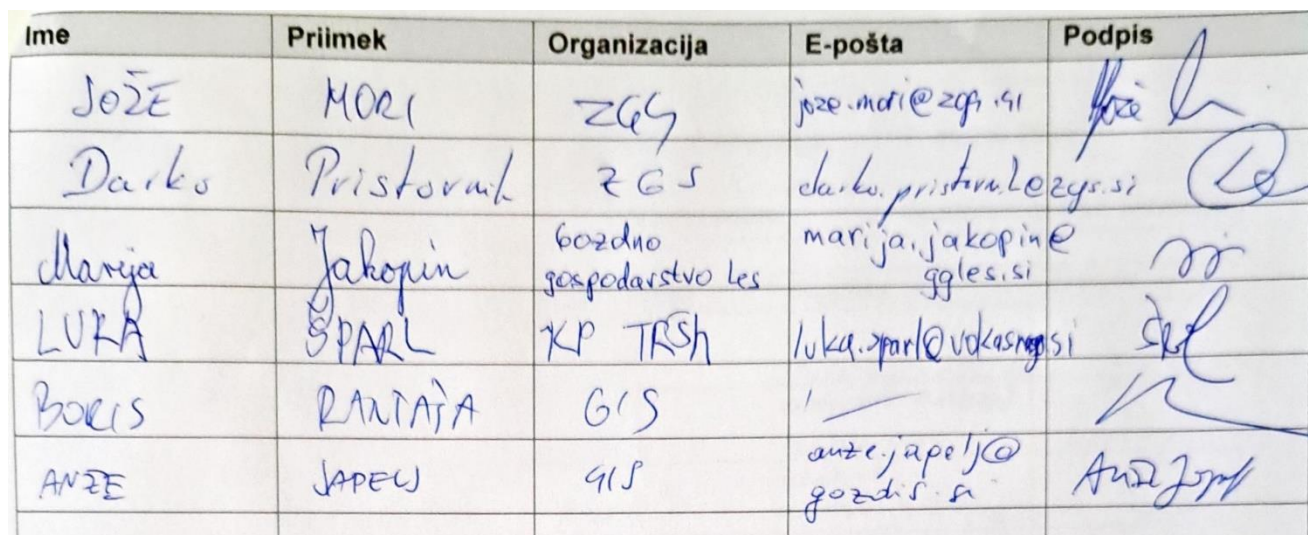 Ime Priimek Organizacija E-pošta Podpis
JOŽE MORI ZGS joze.mori@zgs.si Jože
Darko Pristovnik ZGS darko.pristovnik@zgs.si
Marija Jakopin Gozdno gospodarstvo Les marija.jakopin@ggles.si
LUKA ŠPARL KP luka.sparl@vokasnaga.si
BORIS RANTAŠA GIS /
ANŽE JAPELJ GIS anze.japelj@gozdis.si Anže Japelj